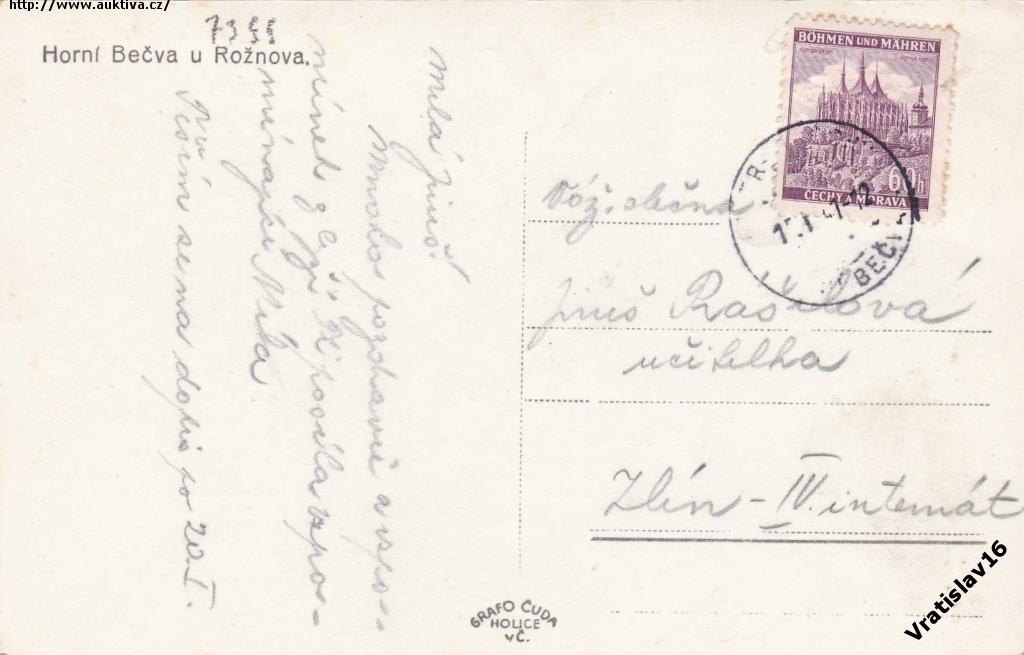 http://www.auktiva.cz/
7944
Horní Bečva u Rožnova.
Milá Jiruš.
Mnoho pozdravů a vzpo-
mínek z Bečv posílá vzpo-
mínající Mila.
Těším se na dopis po 20.I.
BÖHMEN UND MÄHREN
60h
ČECHY A MORAVA
BEČV
Váž. slečna
Jiruš Rašková
učitelka
Zlín - IV. internát
GRAFO ČUDA
HOLICE
v Č.
Vratislav16